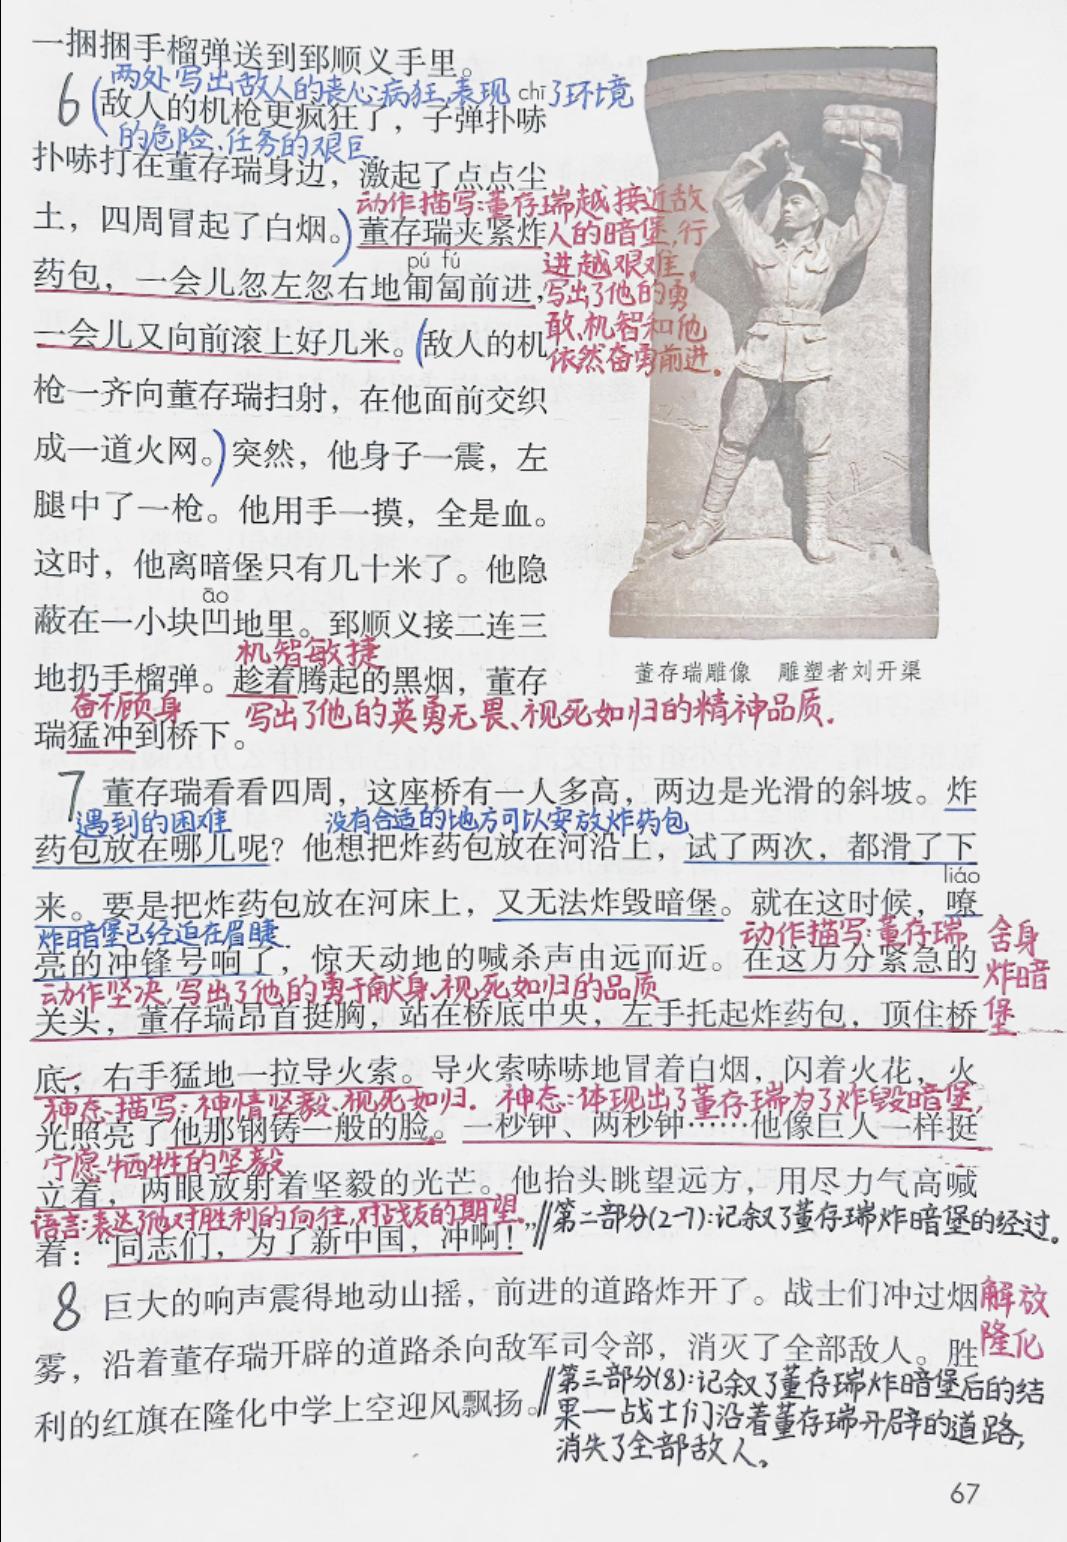 一捆捆手榴弹送到郅顺义手里。
两处写出敌人的丧心病狂,表现了环境
chī
6 (敌人的机枪更疯狂了，子弹扑哧
的危险、任务的艰巨.
扑哧打在董存瑞身边，激起了点点尘
动作描写:董存瑞越接近敌
土，四周冒起了白烟。)董存瑞夹紧炸
人的暗堡,行
pú fú
进越艰难,
药包，一会儿忽左忽右地匍匐前进，
写出了他的勇
敢、机智和他
一会儿又向前滚上好几米。(敌人的机
依然奋勇前进.
枪一齐向董存瑞扫射，在他面前交织
成一道火网。)突然，他身子一震，左
腿中了一枪。他用手一摸，全是血。
这时，他离暗堡只有几十米了。他隐
āo
蔽在一小块凹地里。郅顺义接二连三
机智敏捷
地扔手榴弹。趁着腾起的黑烟，董存
奋不顾身 写出了他的英勇无畏、视死如归的精神品质.
瑞猛冲到桥下。
董存瑞雕像 雕塑者刘开渠
7 董存瑞看看四周，这座桥有一人多高，两边是光滑的斜坡。炸
遇到的困难 没有合适的地方可以安放炸药包
药包放在哪儿呢？他想把炸药包放在河沿上，试了两次，都滑了下
liáo
来。要是把炸药包放在河床上，又无法炸毁暗堡。就在这时候，嘹
炸暗堡已经迫在眉睫.
动作描写:董存瑞舍身
炸暗
堡
亮的冲锋号响了，惊天动地的喊杀声由远而近。在这万分紧急的
动作坚决,写出了他的勇于献身、视死如归的品质
关头，董存瑞昂首挺胸，站在桥底中央，左手托起炸药包，顶住桥
底，右手猛地一拉导火索。导火索哧哧地冒着白烟，闪着火花，火
神态描写:神情坚毅、视死如归. 神态:体现出了董存瑞为了炸毁暗堡,
光照亮了他那钢铸一般的脸。一秒钟、两秒钟……他像巨人一样挺
宁愿牺牲的坚毅
立着，两眼放射着坚毅的光芒。他抬头眺望远方，用尽力气高喊
语言:表达了他对胜利的向往,对战友的期望.
着：“同志们，为了新中国，冲啊！”
∥第二部分(2-7):记叙了董存瑞炸暗堡的经过.
8 巨大的响声震得地动山摇，前进的道路炸开了。战士们冲过烟
解放
隆化
雾，沿着董存瑞开辟的道路杀向敌军司令部，消灭了全部敌人。胜
利的红旗在隆化中学上空迎风飘扬。
∥第三部分(8):记叙了董存瑞炸暗堡后的结
果——战士们沿着董存瑞开辟的道路,
消失了全部敌人。
67